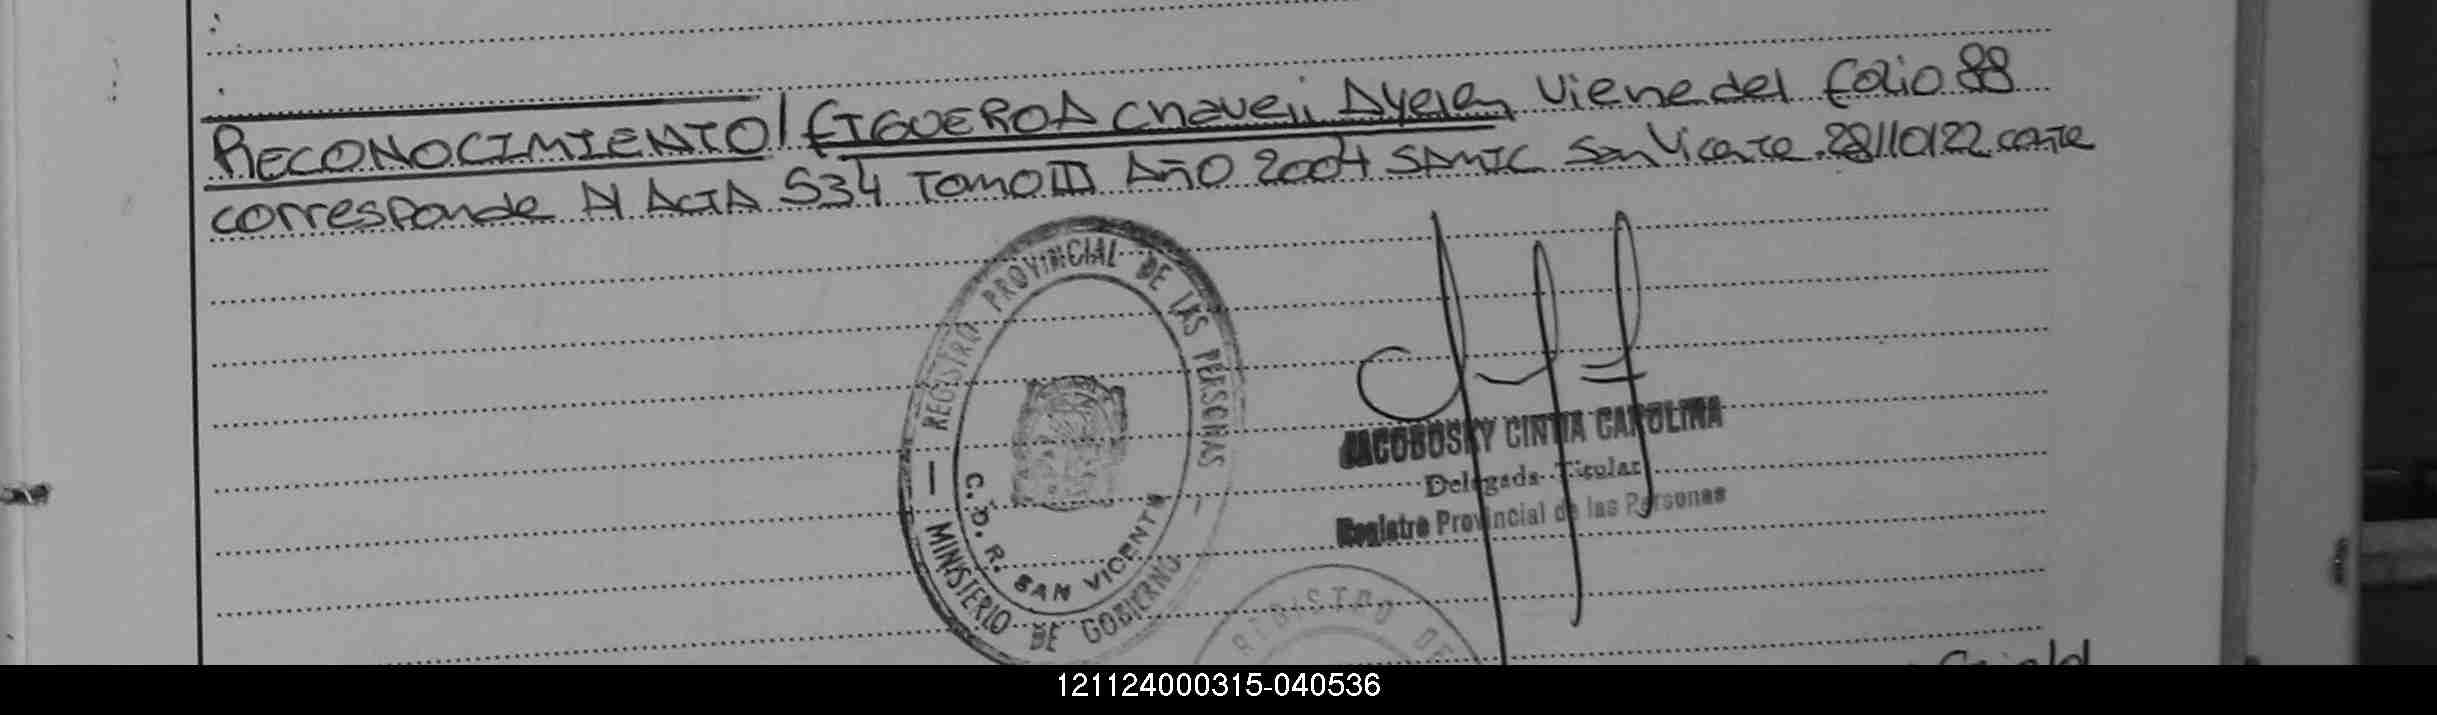 RECONOCIMIENTO/ FIGUEROA Chaveii Ayelen Viene del folio 88
corresponde Al ACTA 534 TOMO III Año 2004 San Vicente 28/10/22 conste
REGISTRO PROVINCIAL DE LAS PERSONAS
C.D.R. SAN VICENTE
MINISTERIO DE GOBIERNO
JACOBOSKY CINTIA CAROLINA
Delegada Titular
Registro Provincial de las Personas
REGISTRO DE
121124000315-040536